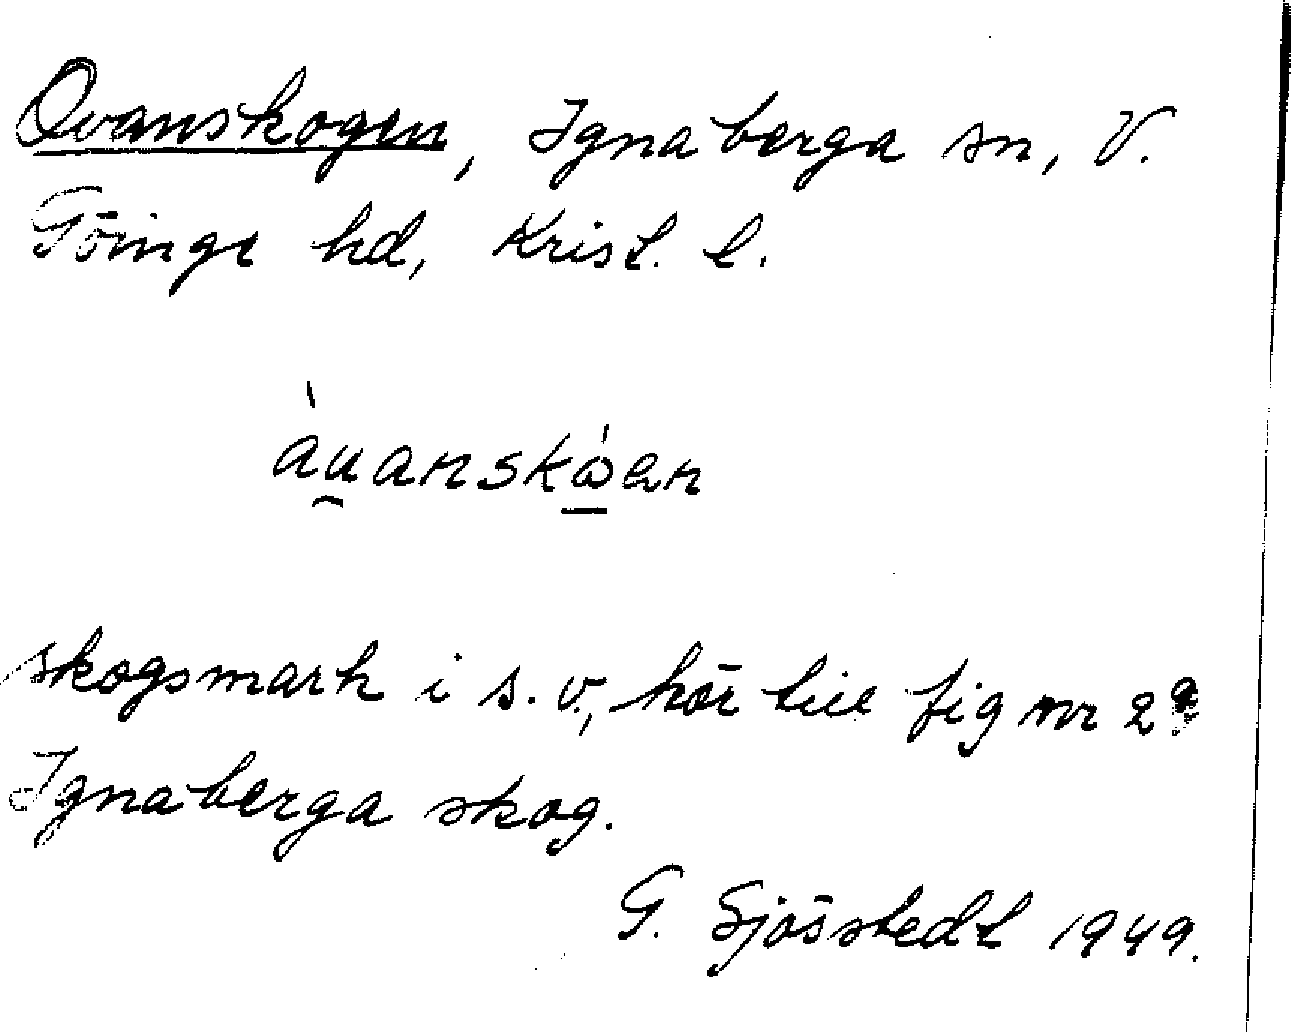 Ovanskogen, Ignaberga sn, V.
Göinge hd, Krist. l.
àu̯anskɷ̀en
skogsmark i s.v., hör till fig nr 2a
Ignaberga skog.
G. Sjöstedt 1949.